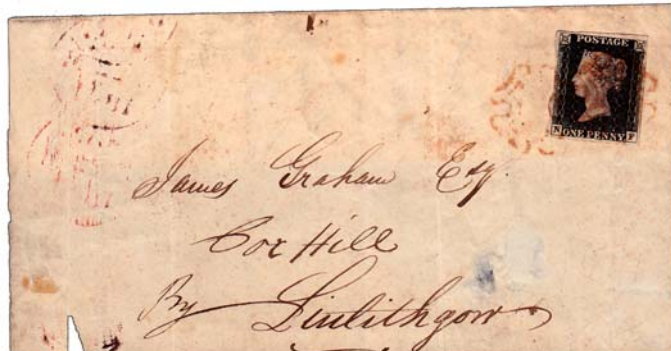 POSTAGE
N ONE PENNY F
James Graham Esqr
Cox Hill
By Linlithgow